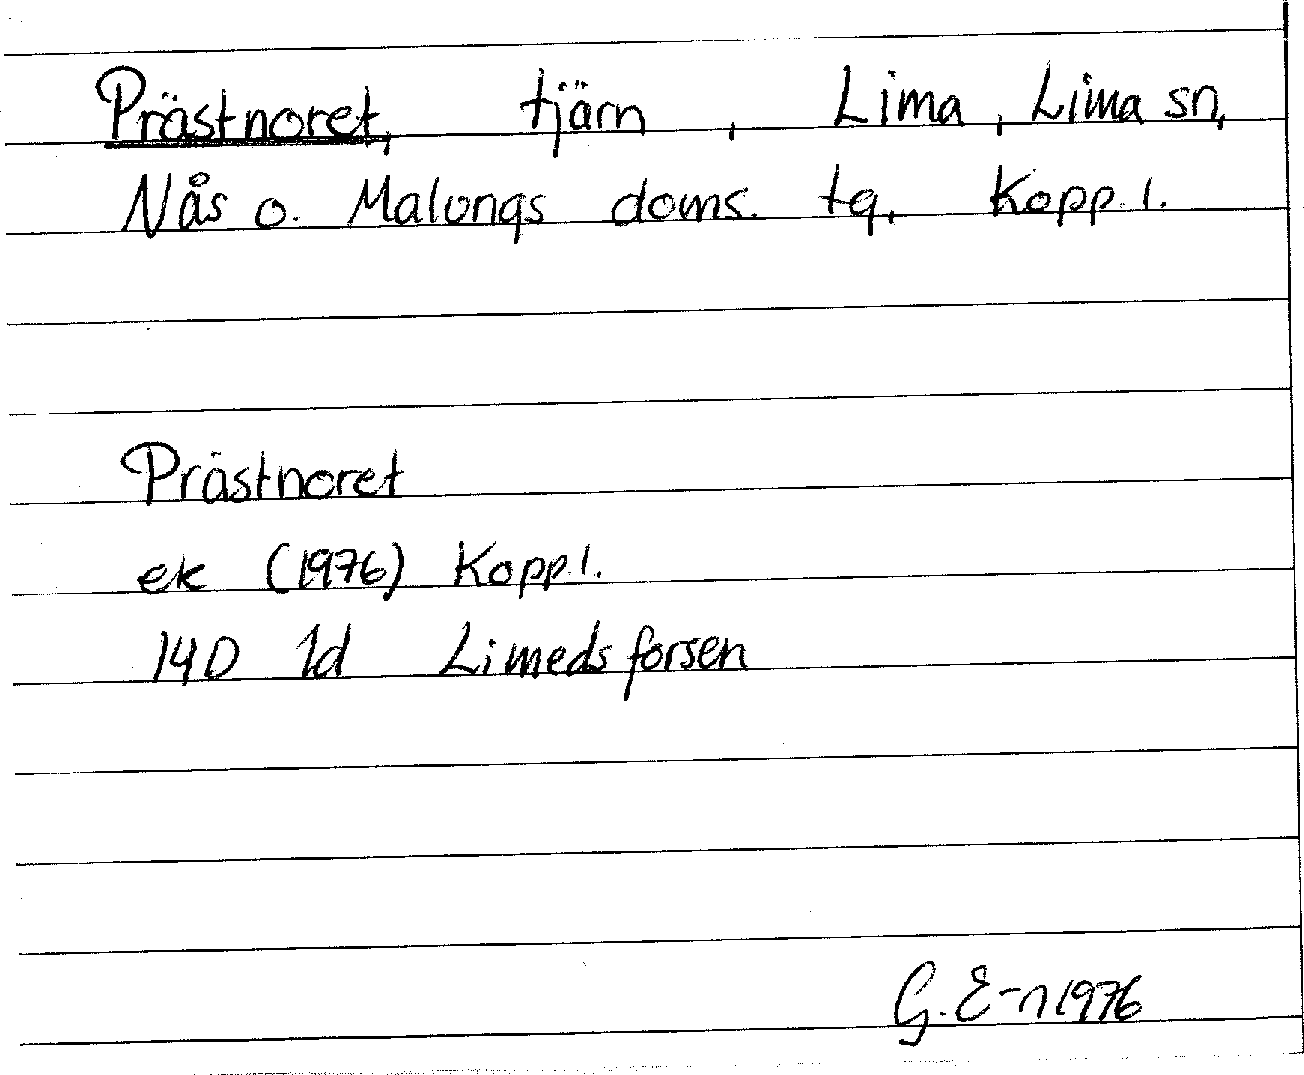 Prästnoret, tjärn , Lima , Lima sn,
Nås o. Malungs doms. tg. Kopp. l.
Prästnoret
ek (1976) Kopp l.
14D 1d Limedsforsen
G. E-n 1976